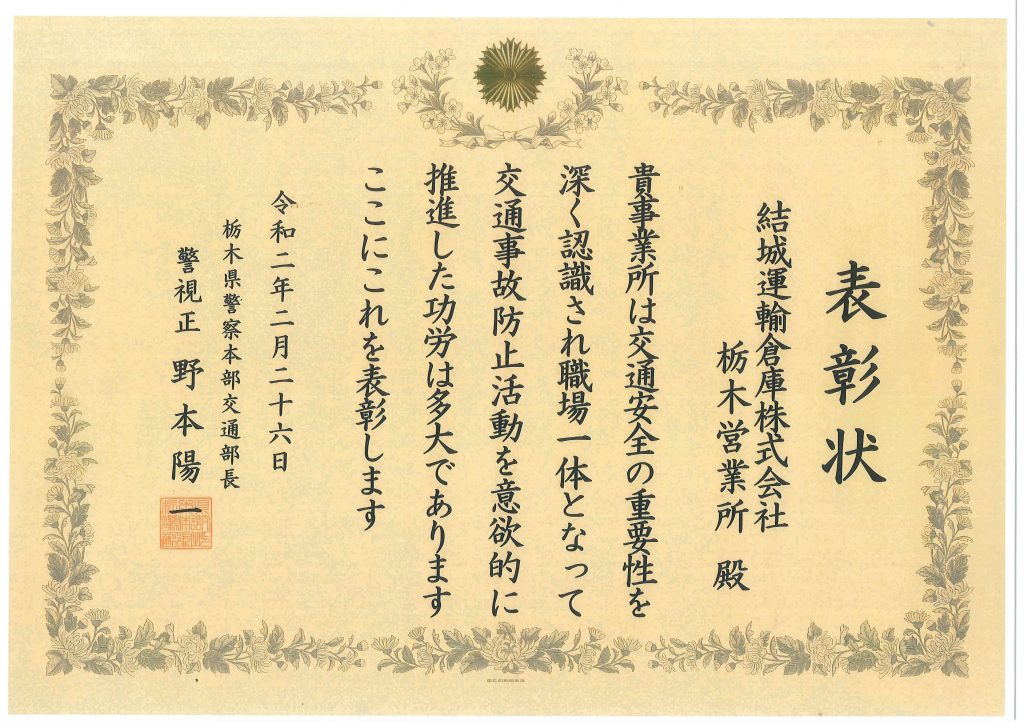 表彰状
結城運輸倉庫株式会社
栃木営業所 殿
貴事業所は交通安全の重要性を
深く認識され職場一体となって
交通事故防止活動を意欲的に
推進した功労は多大であります
ここにこれを表彰します
令和二年二月二十六日
栃木県警察本部交通部長
警視正 野本陽一